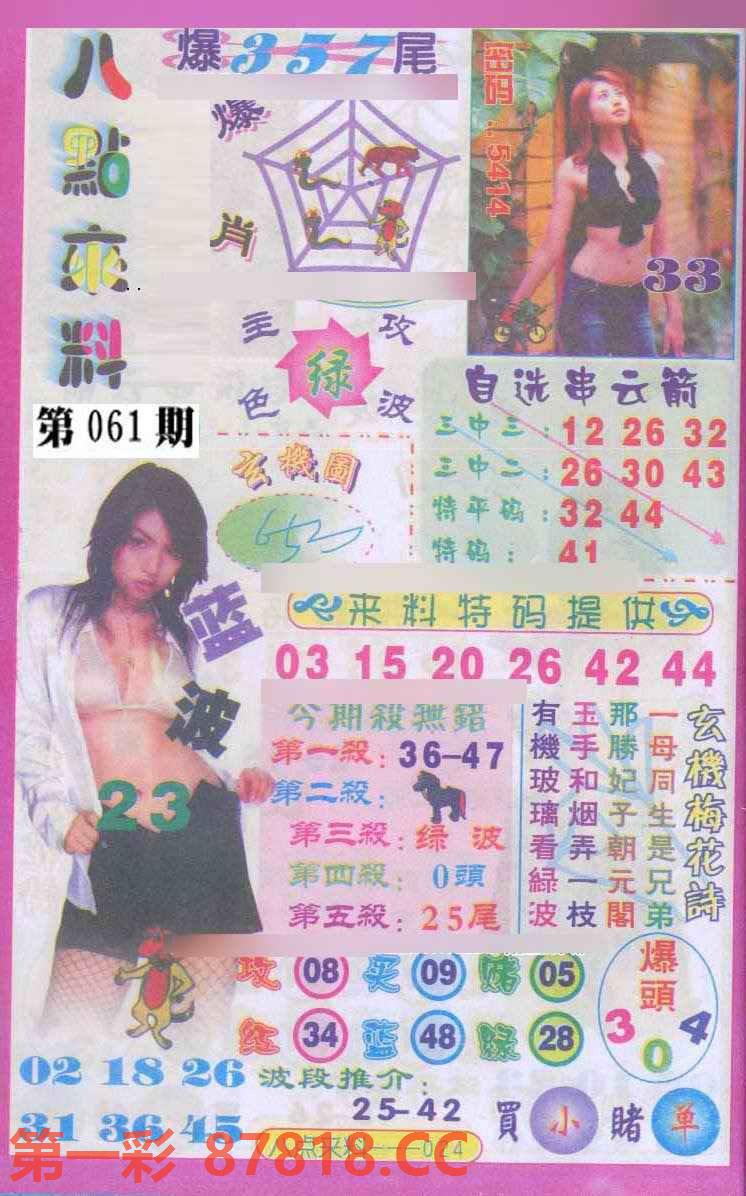 八點來料
爆357尾
爆肖
密码:5414
33
主攻
绿
色波
第061期
自选串云箭
三中三:12 26 32
三中二:26 30 43
特平码:32 44
特码:41
玄機圖
蓝波
23
来料特码提供
03 15 20 26 42 44
今期殺無錯
第一殺:36-47
第二殺:
第三殺:绿波
第四殺:0頭
第五殺:25尾
玄機梅花詩
一母同生是兄弟
那勝妃子朝元閣
玉手和烟弄一枝
有機玻璃看緑波
攻08买09赌05
红34蓝48绿28
爆頭
3 0 4
02 18 26
31 36 45
波段推介:
25-42
買小賭单
八点来料——024
第一彩 87818.CC